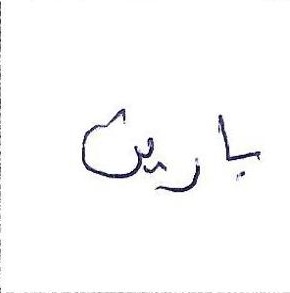 يارين